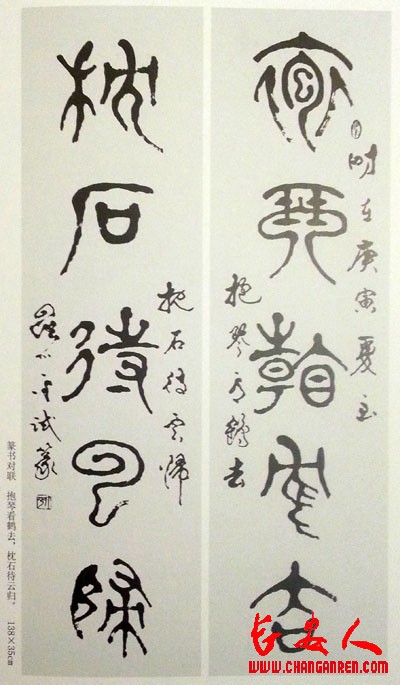 抱琴看鶴去
时在庚寅夏至
抱琴看鶴去
枕石待云歸
枕石待雲歸
试篆
篆书对联 抱琴看鹤去，枕石待云归。 138×35cm
长安人
WWW.CHANGANREN.COM